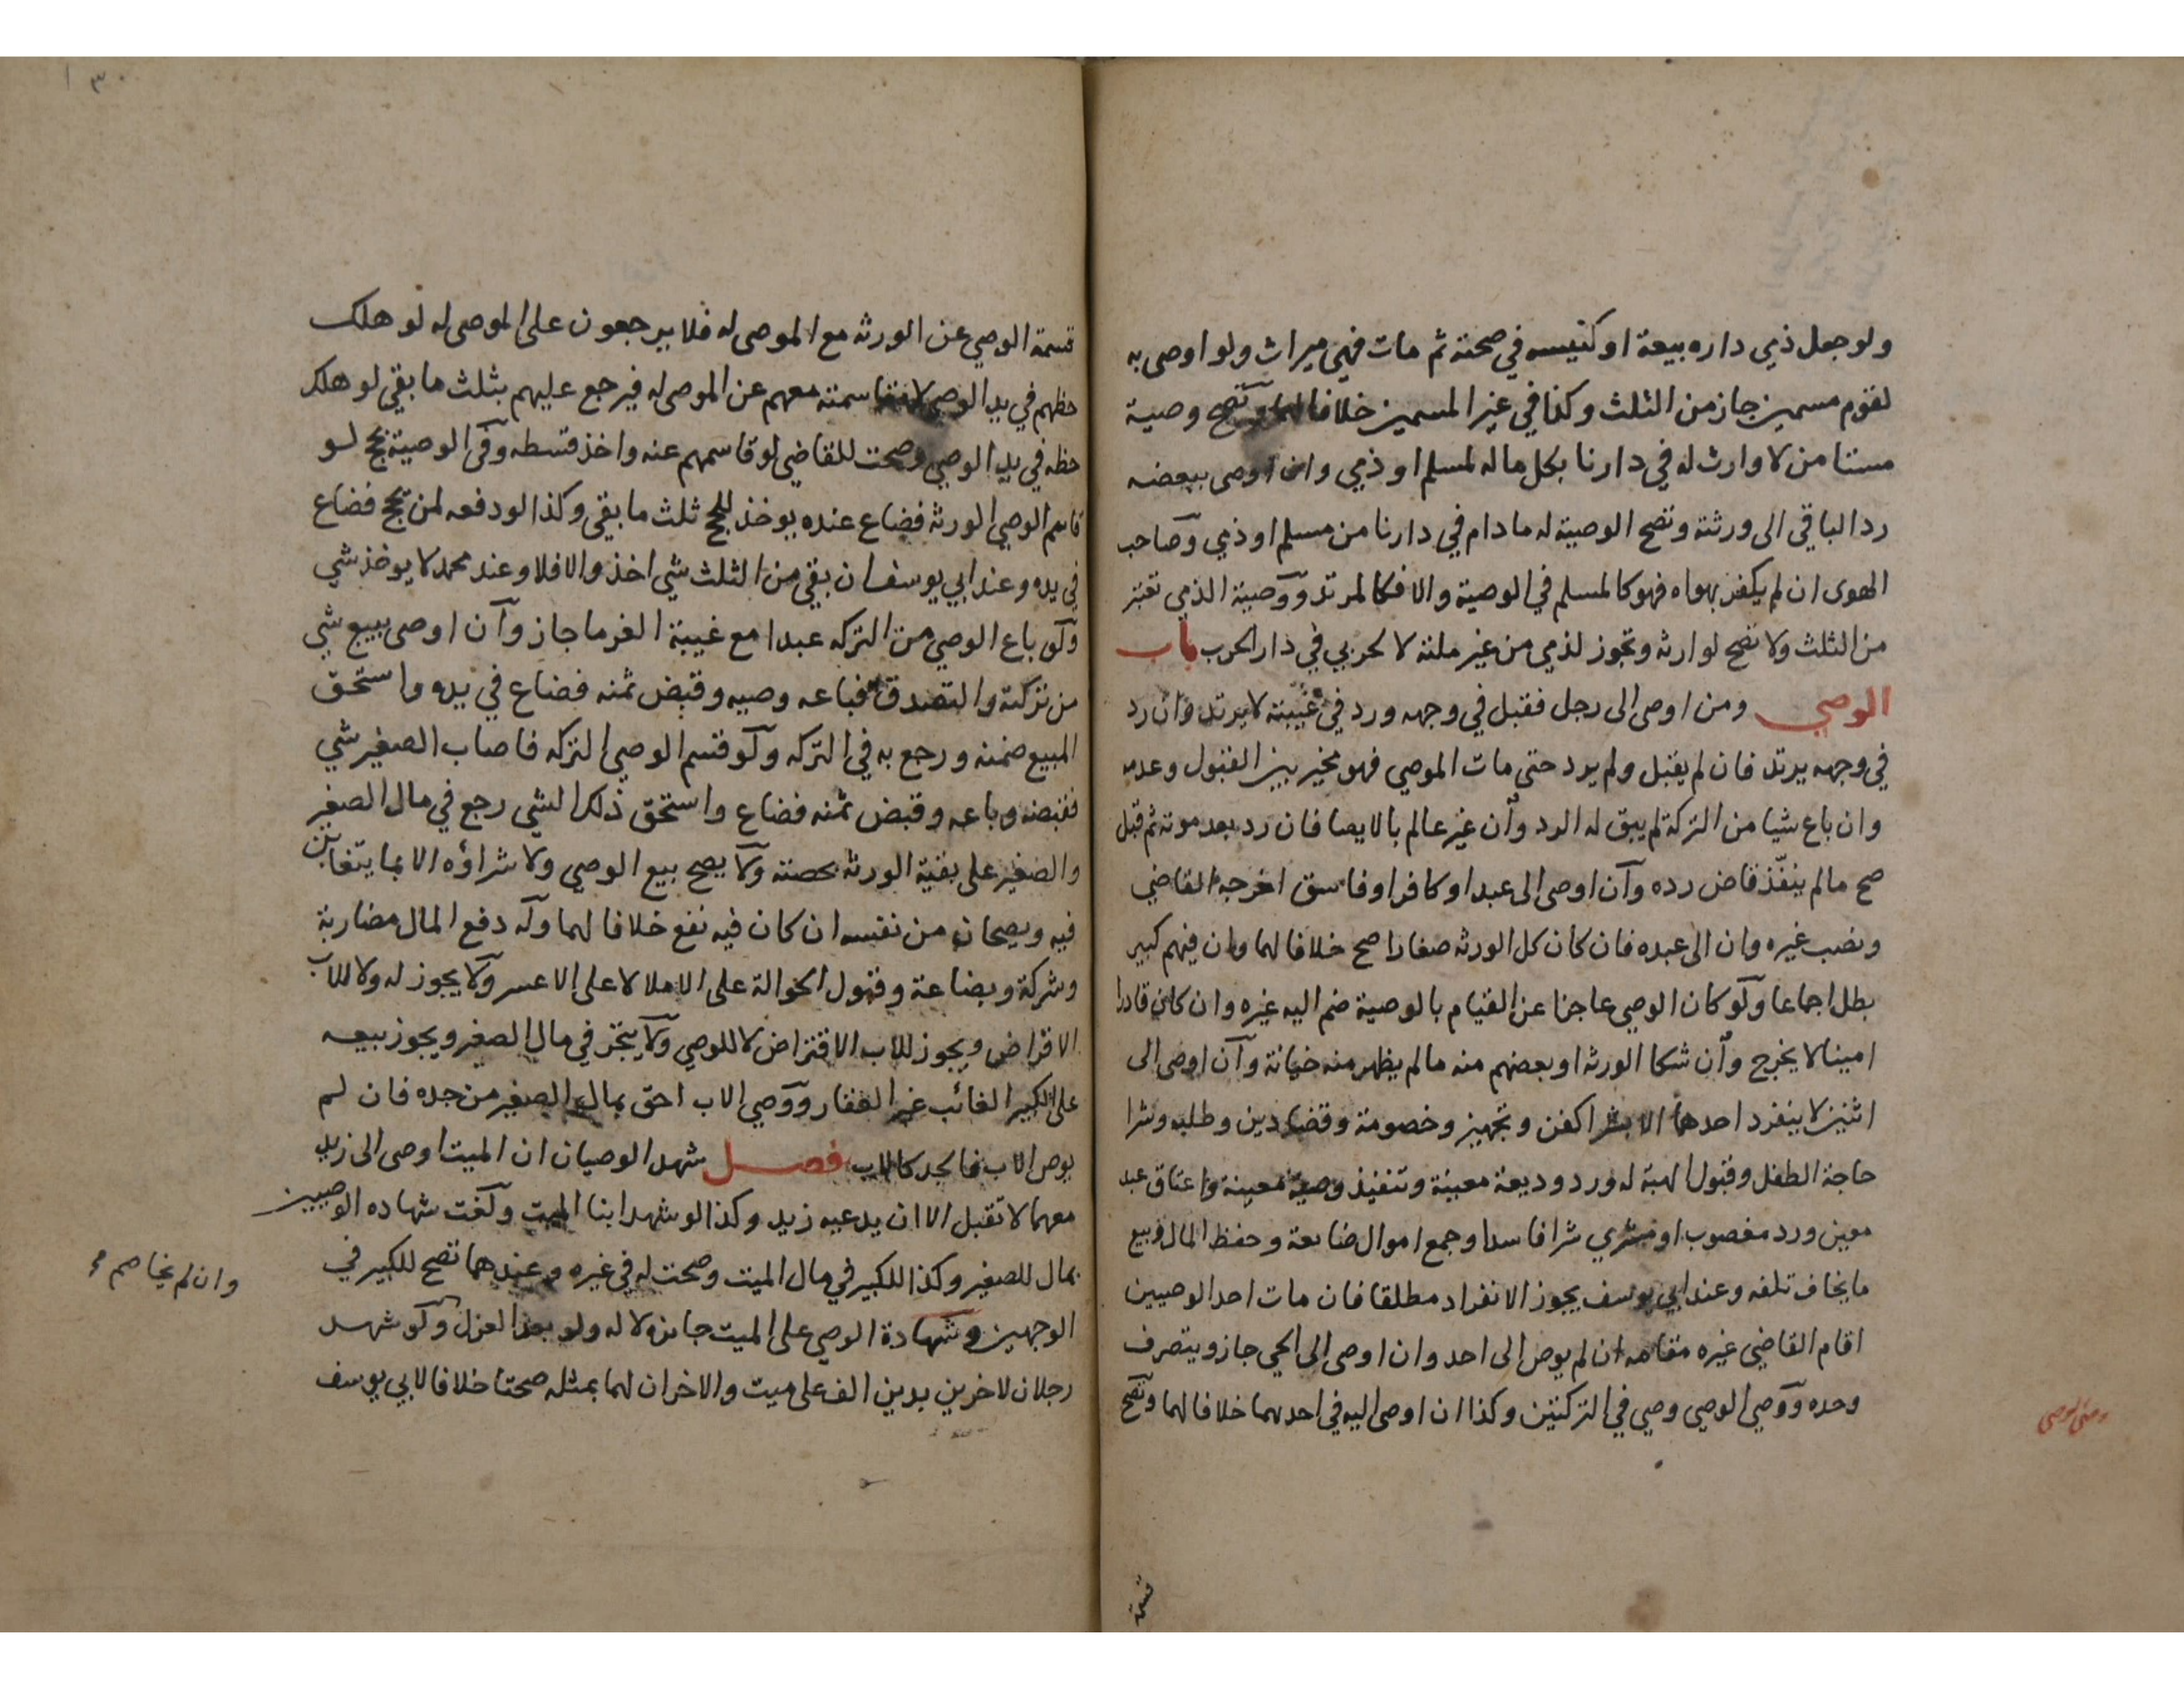 ولو جعل ذمي داره بيعة او كنيسه في صحته ثم مات فهي ميراث ولو اوصى به
لقوم مسمين جاز من الثلث وكذا في غير المسمين خلافا لهما وتصح وصية
مستامن لا وارث له في دارنا بكل ماله لمسلم او ذمي وان اوصى ببعضه
رد الباقي الى ورثته وتصح الوصية له ما دام في دارنا من مسلم او ذمي وصاحب
الهوى ان لم يكفر بهواه فهو كالمسلم في الوصية والا فكالمرتد ووصية الذمي تعتبر
من الثلث ولا تصح لوارثه وتجوز لذمي من غير ملته لا لحربي في دار الحرب باب
الوصي ومن اوصى الى رجل فقبل في وجهه ورد في غيبته لا يرتد وان رد
في وجهه يرتد فان لم يقبل ولم يرد حتى مات الموصي فهو مخير بين القبول وعدمه
وان باع شيا من التركة لم يبق له الرد وان غير عالم بالايصا فان رد بعد موته ثم قبل
صح ما لم ينفذ قاض رده وان اوصى الى عبد او كافر او فاسق اخرجه القاضي
ونصب غيره وان الى عبده فان كان كل الورثه صغارا صح خلافا لهما وان فيهم كبير
بطل اجماعا ولو كان الوصي عاجزا عن القيام بالوصية ضم اليه غيره وان كان قادرا
امينا لا يخرج وان شكا الورثه او بعضهم منه ما لم يظهر منه خيانة وان اوصى الى
اثنين لا ينفرد احدهما الا بشرا كفن وتجهيز وخصومة وقضا دين وطلبه وشرا
حاجة الطفل وقبول الهبة له ورد وديعة معينة وتنفيذ وصية معينة واعتاق عبد
معين ورد مغصوب او مشري شرا فاسدا وجمع اموال ضايعة وحفظ المال وبيع
ما يخاف تلفه وعند ابي يوسف يجوز الانفراد مطلقا فان مات احد الوصيين
اقام القاضي غيره مقامه ان لم يوص الى احد وان اوصى الى الحي جاز ويتصرف
وحده ووصي الوصي وصي في التركتين وكذا ان اوصى اليه في احدهما خلافا لهما وتصح
قسمة
قسمة الوصي عن الورثه مع الموصى له فلا يرجعون على الموصى له لو هلك
حظهم في يد الوصي لا مقاسمته معهم عن الموصى له فيرجع عليهم بثلث ما بقي لو هلك
حظه في يد الوصي وصحت للقاضي لو قاسمهم عنه واخذ قسطه وفي الوصية بحج لو
قاسم الوصي الورثه فضاع عنده يوخذ للحج ثلث ما بقي وكذا لو دفعه لمن يحج فضاع
في يده وعند ابي يوسف ان بقي من الثلث شي اخذ والا فلا وعند محمد لا يوخذ شي
ولو باع الوصي من التركه عبدا مع غيبة الغرما جاز وان اوصى ببيع شي
من تركته والتصدق فباعه وصيه وقبض ثمنه فضاع في يده واستحق
المبيع ضمنه ورجع به في التركه ولو قسم الوصي التركه فاصاب الصغير شي
فقبضه وباعه وقبض ثمنه فضاع واستحق ذلك الشي رجع في مال الصغير
والصغير على بقية الورثه بحصته ولا يصح بيع الوصي ولا شراؤه الا بما يتغابن
فيه ويصحان من نفسه ان كان فيه نفع خلافا لهما وله دفع المال مضاربة
وشركة وبضاعة وقبول الحوالة على الاملا لا على الاعسر ولا يجوز له ولا للاب
الاقراض ويجوز للاب الاقتراض لا للوصي ولا يتجر في مال الصغير ويجوز بيعه
على الكبير الغائب غير العقار ووصي الاب احق بمال الصغير من جده فان لم
يوص الاب فالجد كالاب فصل شهد الوصيان ان الميت اوصى الى زيد
معهما لا تقبل الا ان يدعيه زيد وكذا لو شهد ابنا الميت ولغت شهاده الوصيين
بمال للصغير وكذا للكبير في مال الميت وصحت له في غيره وعندهما تصح للكبير في
الوجهين وشهادة الوصي على الميت جائزه لا له ولو بعد العزل ولو شهد
رجلان لاخرين بدين الف على ميت والاخران لهما بمثله صحتا خلافا لابي يوسف
وان لم يخاصم